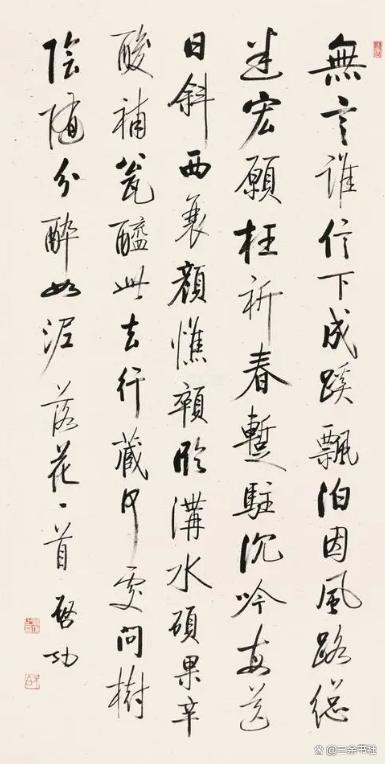 無言誰信下成蹊飄泊因風路總
迷宏願枉祈春蹔駐沉吟每送
日斜西衰顏憔顇臨溝水碩果辛
酸補瓮醯此去行藏何處問樹
陰隨分醉如泥 落花一首 啟功
@三余书社